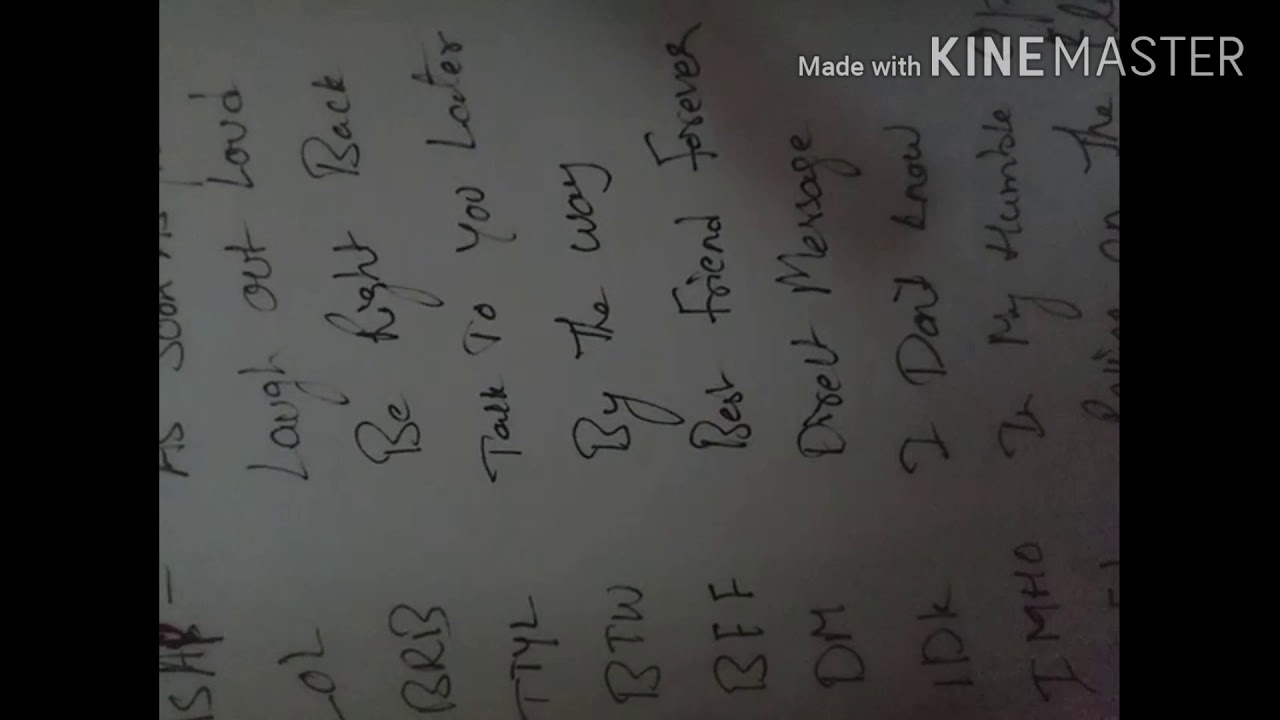 Made with KINEMASTER
ASAP - AS SOON AS
LOL Laugh out Loud
BRB Be Right Back
TTYL Talk To You Later
BTW By The way
BFF Best Friend Forever
DM Direct Message
IDK I Don't know
IMHO In My Humble
Rolling on The